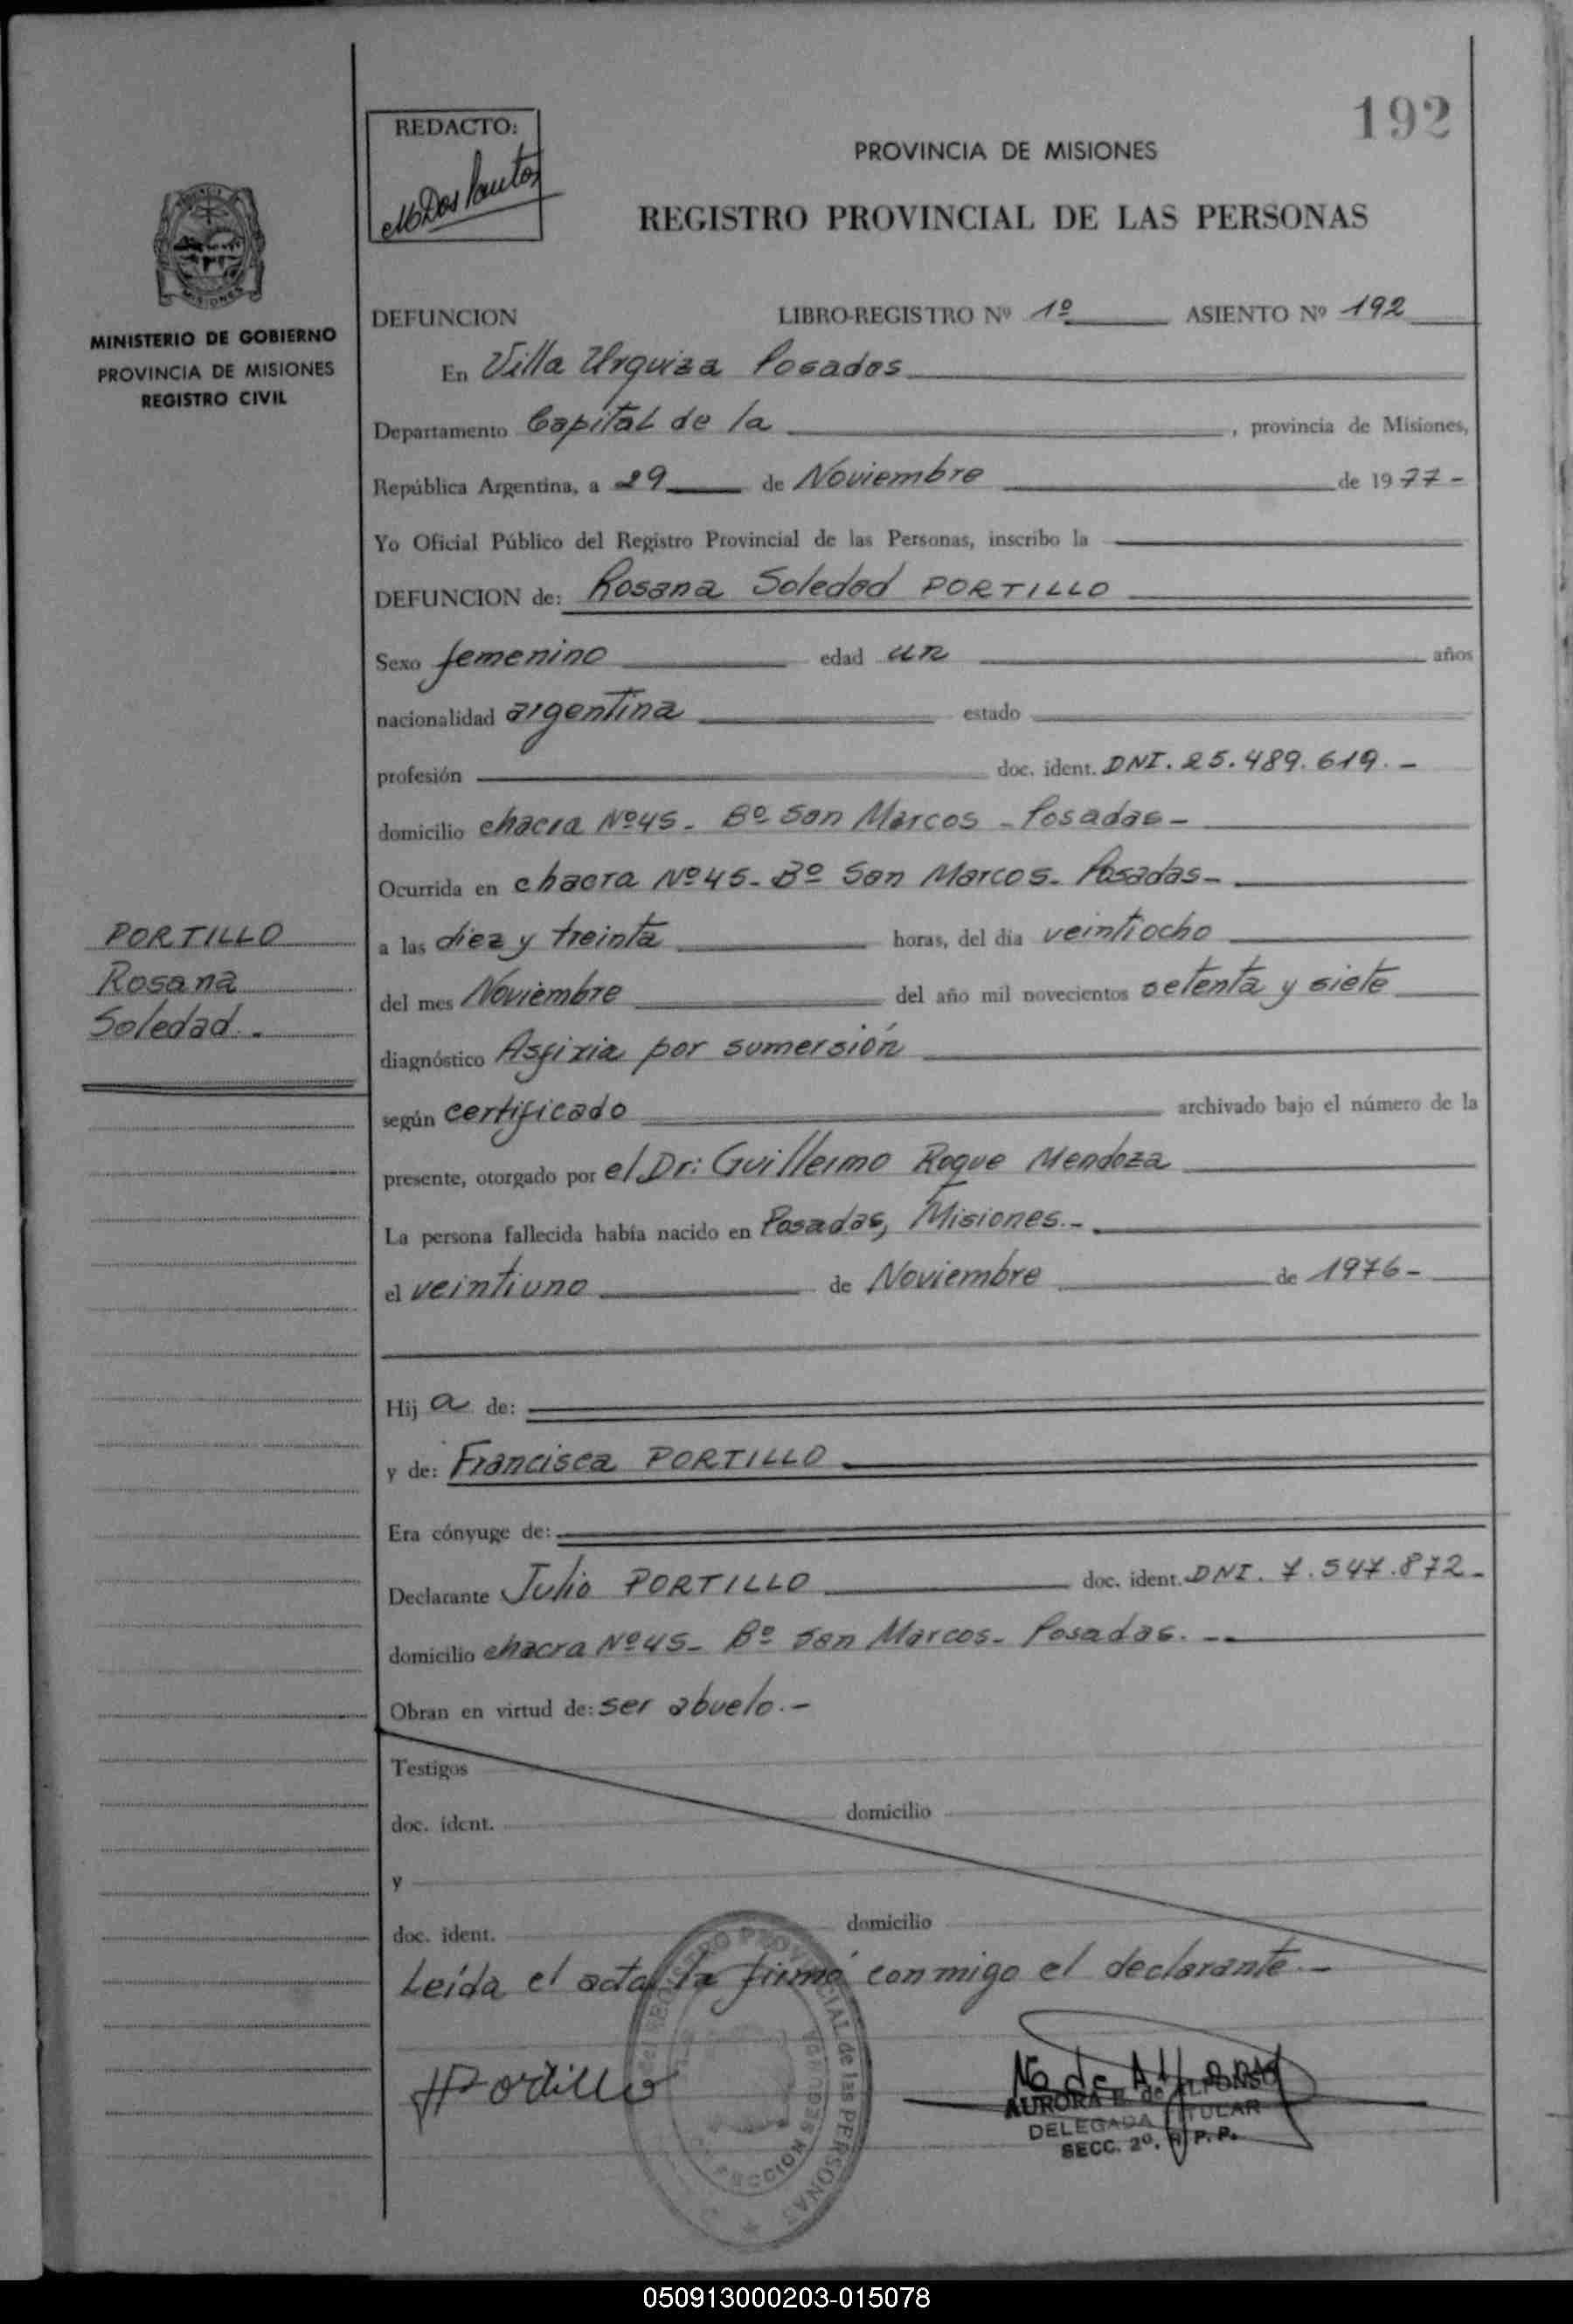 192
REDACTO:
PROVINCIA DE MISIONES
REGISTRO PROVINCIAL DE LAS PERSONAS
MISIONES
MINISTERIO DE GOBIERNO
PROVINCIA DE MISIONES
REGISTRO CIVIL
DEFUNCION LIBRO-REGISTRO Nº 1º ASIENTO Nº 192
En Villa Urquiza Posadas
Departamento Capital de la , provincia de Misiones,
República Argentina, a 29 de Noviembre de 1977-
Yo Oficial Público del Registro Provincial de las Personas, inscribo la
DEFUNCION de: Rosana Soledad PORTILLO
Sexo femenino edad un años
nacionalidad argentina estado
profesión doc. ident. DNI. 25.489.619.-
domicilio chacra Nº45- Bº San Marcos - Posadas-
Ocurrida en chacra Nº45- Bº San Marcos- Posadas-
a las diez y treinta horas, del día veintiocho
del mes Noviembre del año mil novecientos setenta y siete
diagnóstico Asfixia por sumersión
según certificado archivado bajo el número de la
presente, otorgado por el Dr: Guillermo Roque Mendoza
La persona fallecida había nacido en Posadas, Misiones.-
el veintiuno de Noviembre de 1976-
PORTILLO
Rosana
Soledad.-
Hij a de:
y de: Francisca PORTILLO
Era cónyuge de:
Declarante Julio PORTILLO doc. ident. DNI. 7.547.872-
domicilio chacra Nº45- Bº San Marcos- Posadas.--
Obran en virtud de: ser abuelo.-
Testigos
doc. ident. domicilio
y
doc. ident. domicilio
Leída el acta la firmó conmigo el declarante.-
JPortillo
REGISTRO PROVINCIAL de las PERSONAS
SECCION SEGUNDA
AURORA de ALFONSO
DELEGADA TITULAR
SECC. 2º. R.P.P.
050913000203-015078